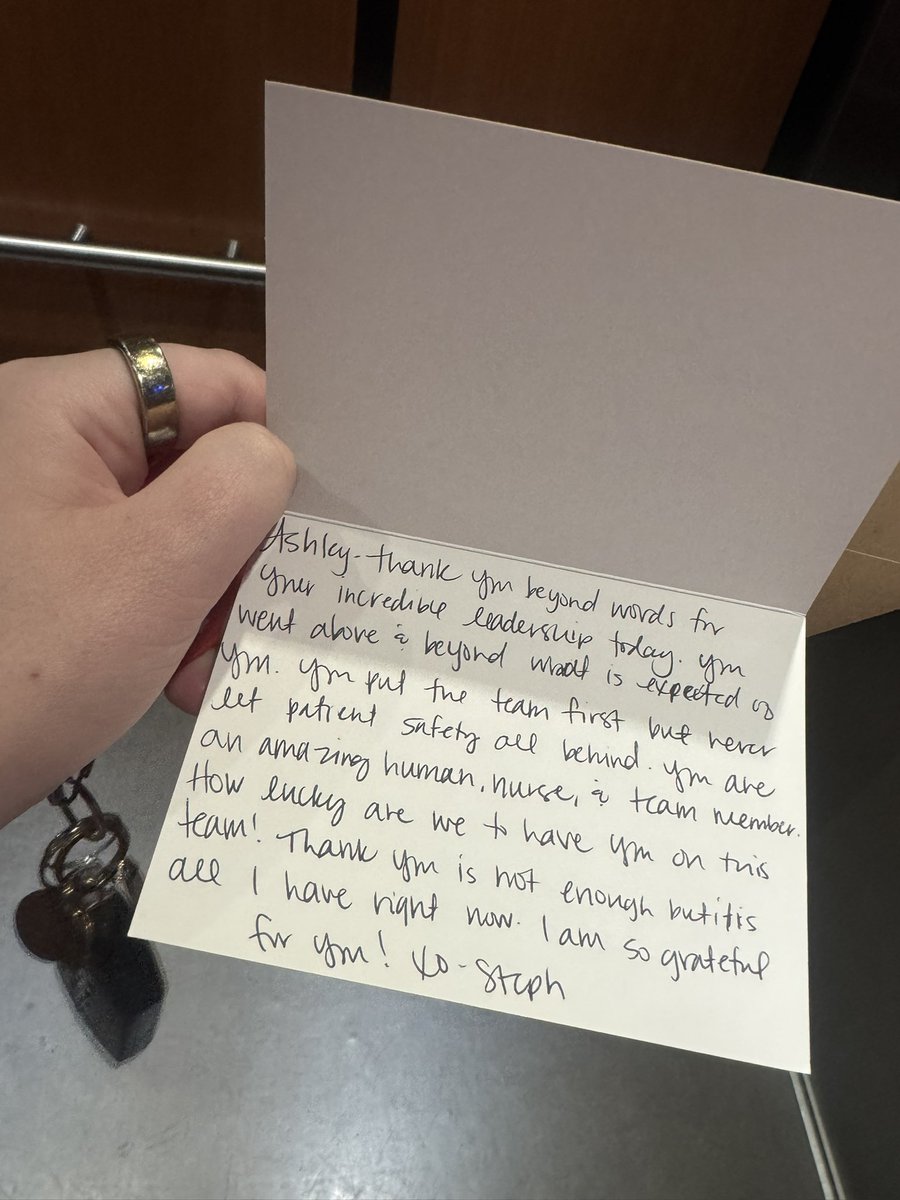 Ashley- thank you beyond words for
your incredible leadership today. you
went above & beyond what is expected of
you. you put the team first but never
let patient safety all behind. you are
an amazing human, nurse, & team member.
How lucky are we to have you on this
team! Thank you is not enough but it is
all I have right now. I am so grateful
for you! xo - Steph